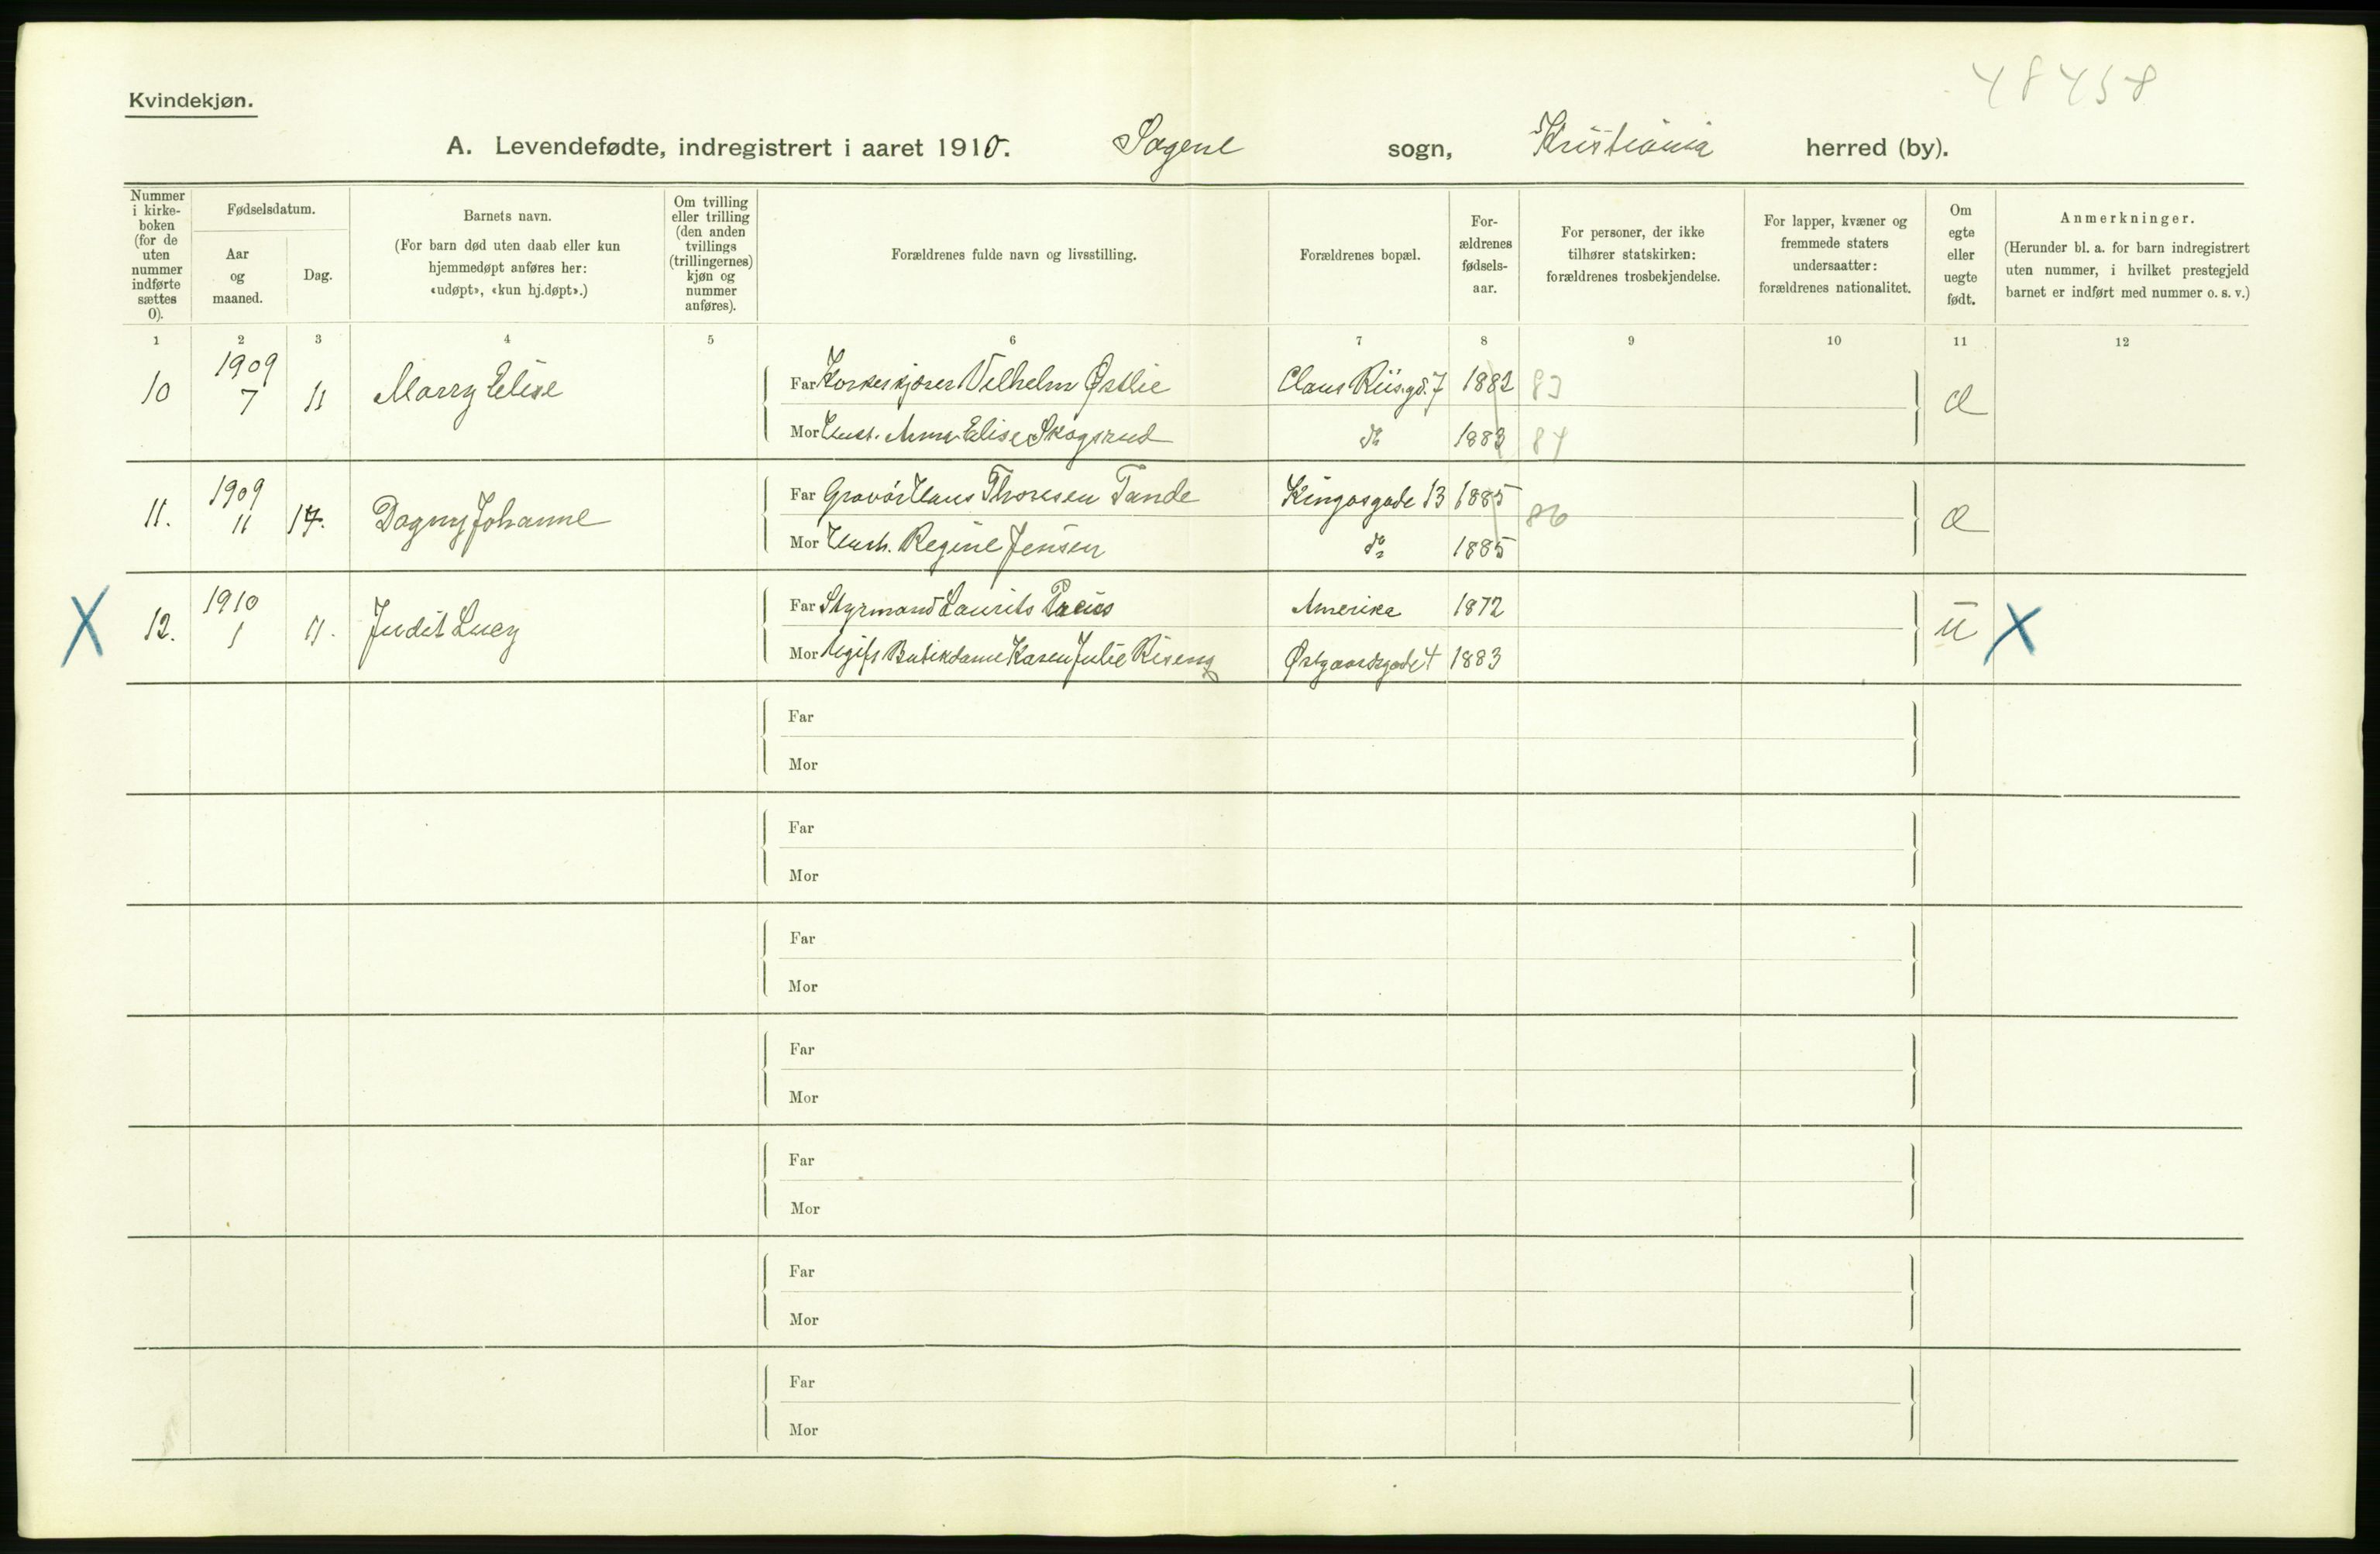 48458
Kvindekjøn.
A. Levendefødte, indregistrert i aaret 1910. Sagene sogn, Kristiania herred (by).
Nummer i kirke-boken (for de uten nummer indførte sættes 0).
Fødselsdatum.
Aar og maaned.
Dag.
Barnets navn.
(For barn død uten daab eller kun
hjemmedøpt anføres her:
«udøpt», «kun hj.døpt».)
Om tvilling
eller trilling
(den anden
tvillings
(trillingernes)
kjøn og
nummer
anføres).
Forældrenes fulde navn og livsstilling.
Forældrenes bopæl.
For-
ældrenes
fødsels-
aar.
For personer, der ikke
tilhører statskirken:
forældrenes trosbekjendelse.
For lapper, kvæner og
fremmede staters
undersaatter:
forældrenes nationalitet.
Om
egte
eller
uegte
født.
Anmerkninger.
(Herunder bl. a. for barn indregistrert
uten nummer, i hvilket prestegjeld
barnet er indført med nummer o. s. v.)
1 2 3 4 5 6 7 8 9 10 11 12
10 1909 7 11 Marry Elise Far Vilhelm Østlie Claus Riisgd. 7 1882 83
Mor Hust. Anna Elise Skogsrud do 1883 84
11. 1909 11 17. Dagny Johanne Far Gravør Hans Thoresen Tande Kingosgade 13 1885 86
Mor Hust. Regine Jensen do 1885
X 12. 1910 1 11. Judit Lucy Far Styrmand Laurits Amerika 1872 u X
Mor Ugift Butikdame Karen Julie Riseng Østgaardsgade 4 1883
Far
Mor
Far
Mor
Far
Mor
Far
Mor
Far
Mor
Far
Mor
Far
Mor